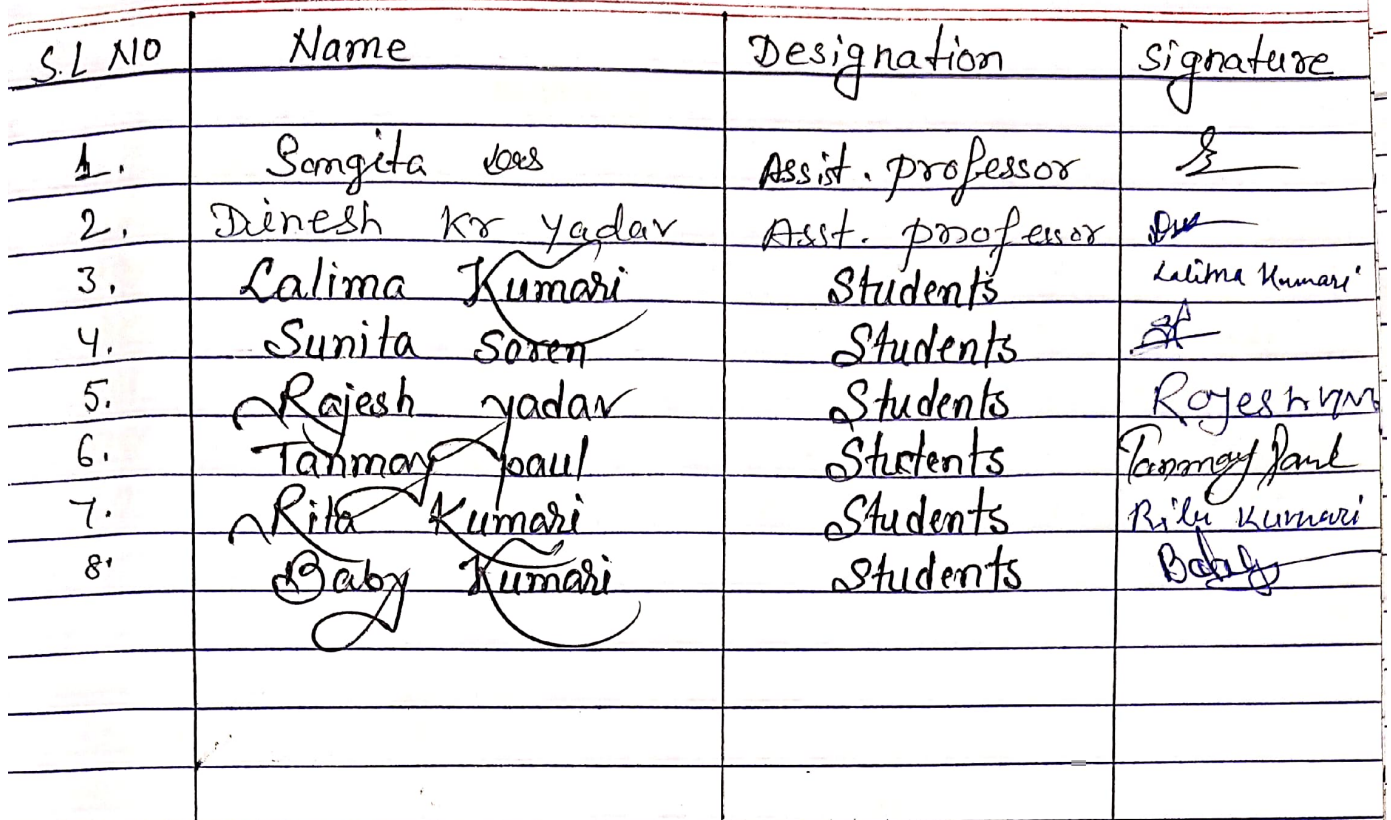 S.L NO Name Designation Signature
1. Sangita Das Assist. professor
2. Dinesh Kr yadav Asst. professor
3. Lalima Kumari Students Lalima Kumari
4. Sunita Soren Students
5. Rajesh yadav Students Rajesh
6. Tanmay paul Students Tanmay Paul
7. Rita Kumari Students Kumari
8. Baby Kumari Students Baby